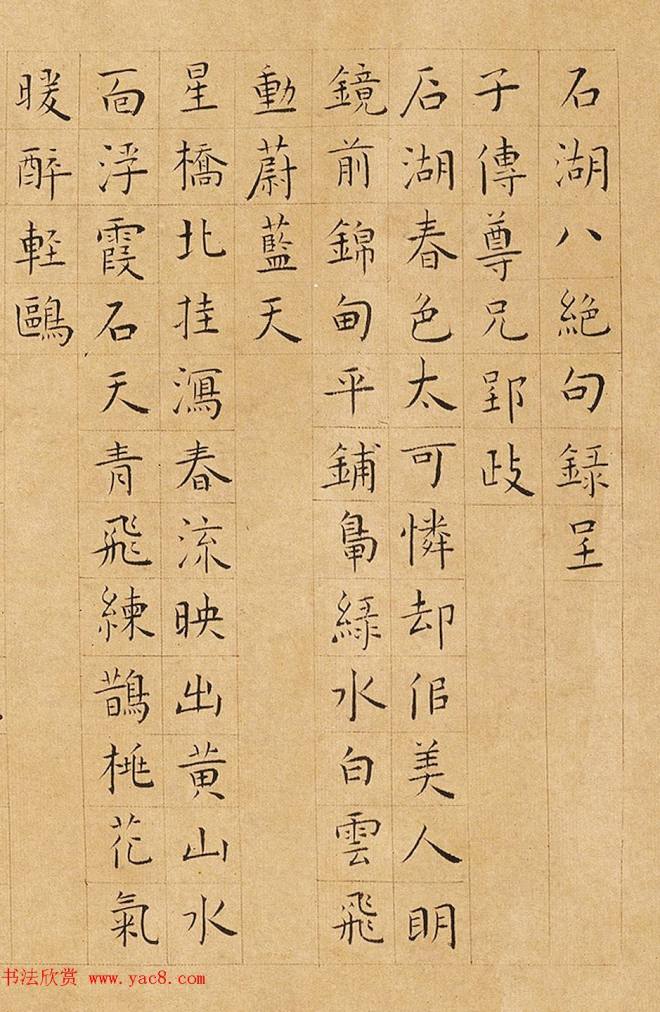 石湖八絕句錄呈
子傳尊兄郢政
石湖春色太可憐却佀美人明
鏡前錦甸平鋪鳧綠水白雲飛
動蔚藍天
星橋北挂瀉春流映出黄山水
面浮霞石天青飛練鵲桃花氣
暖醉輕鷗
书法欣赏 www.yac8.com